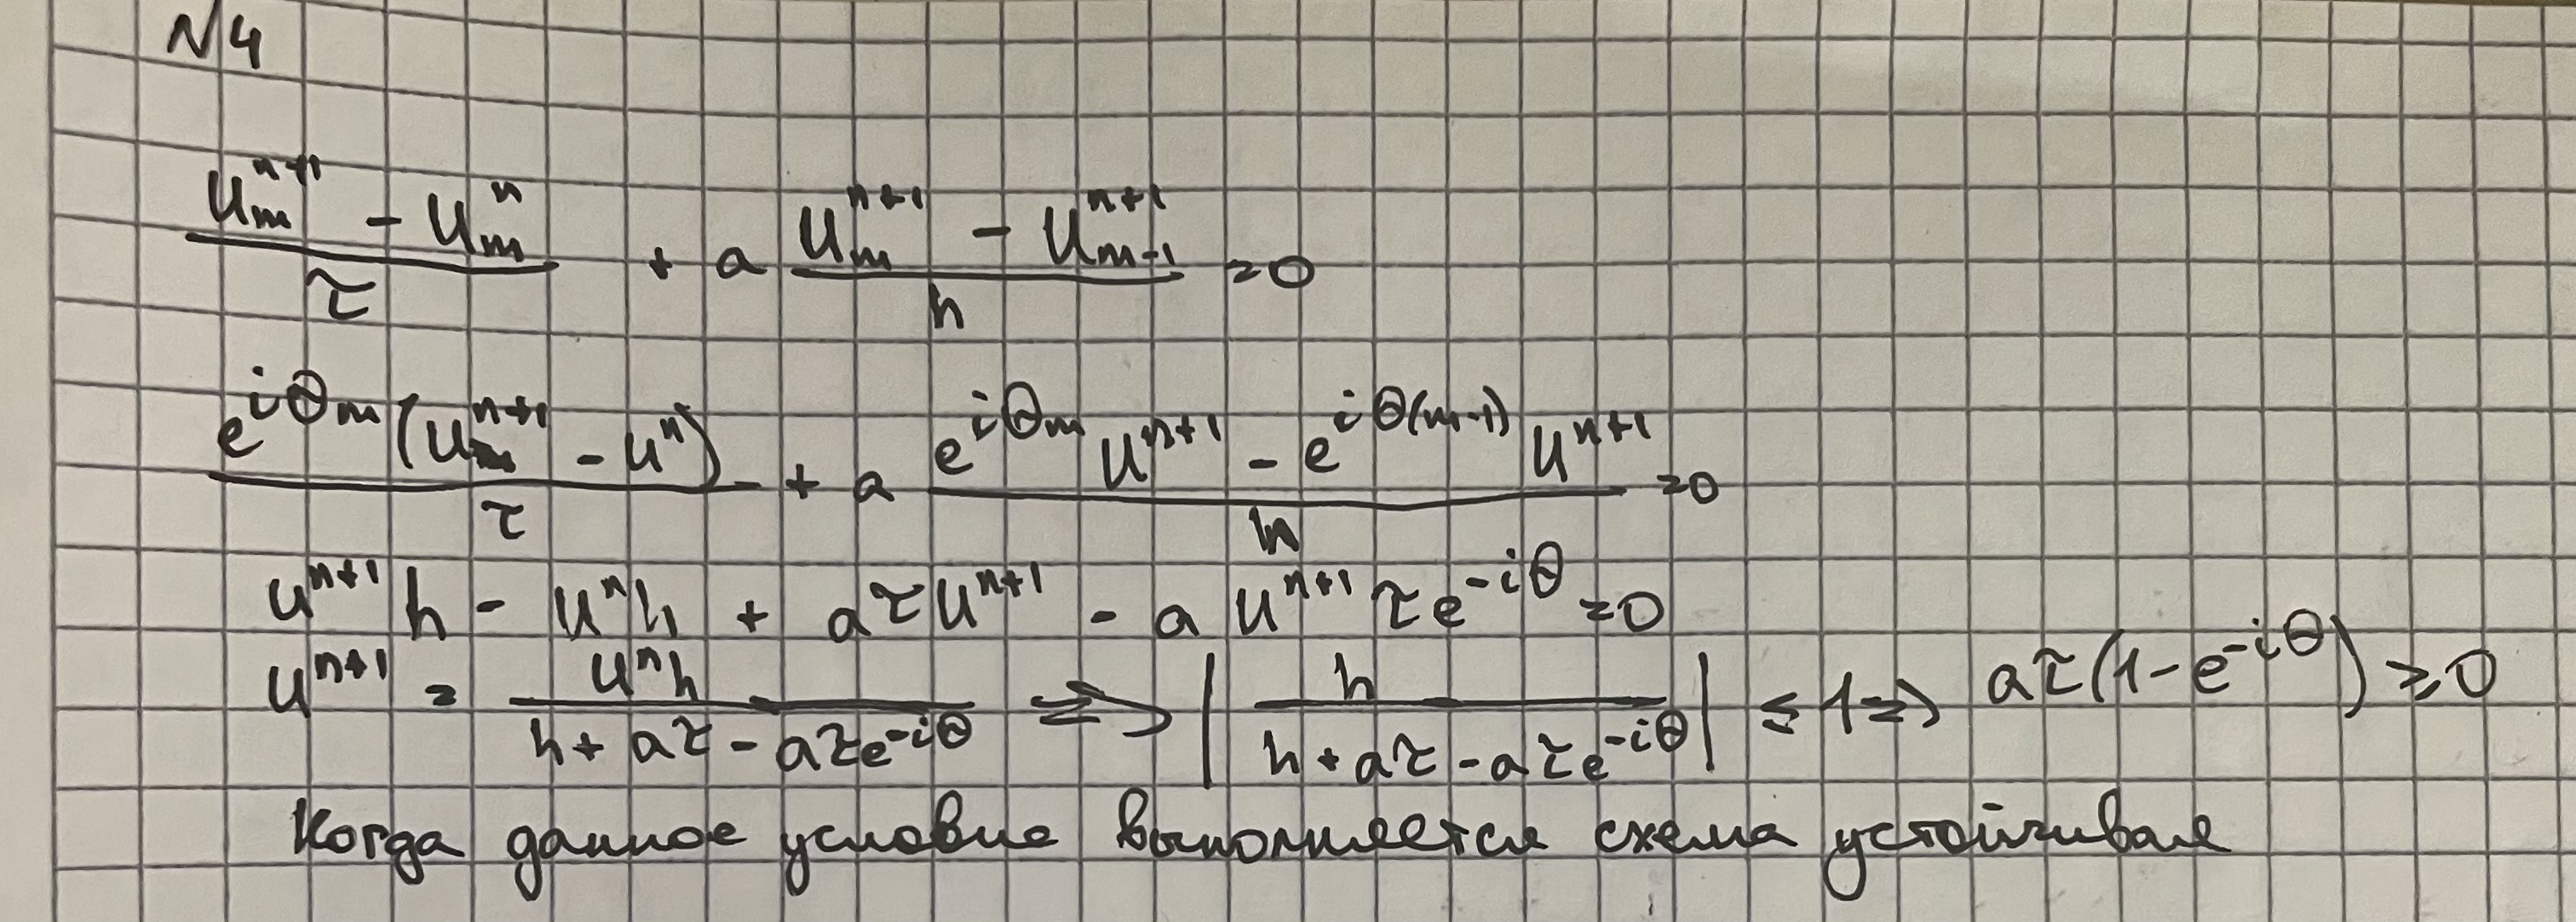 N4
\frac{u_m^{n+1} - u_m^n}{τ} + a \frac{u_m^{n+1} - u_{m-1}^{n+1}}{h} = 0
\frac{e^{iθm}(u^{n+1} - u^n)}{τ} + a \frac{e^{iθm} u^{n+1} - e^{iθ(m-1)} u^{n+1}}{h} = 0
u^{n+1} h - u^n h + aτu^{n+1} - a u^{n+1} τe^{-iθ} = 0
u^{n+1} = \frac{u^n h}{h + aτ - aτe^{-iθ}} => |\frac{h}{h + aτ - aτe^{-iθ}}| ≤ 1 => aτ(1 - e^{-iθ}) ≥ 0
Когда данное условие выполняется схема устойчивая